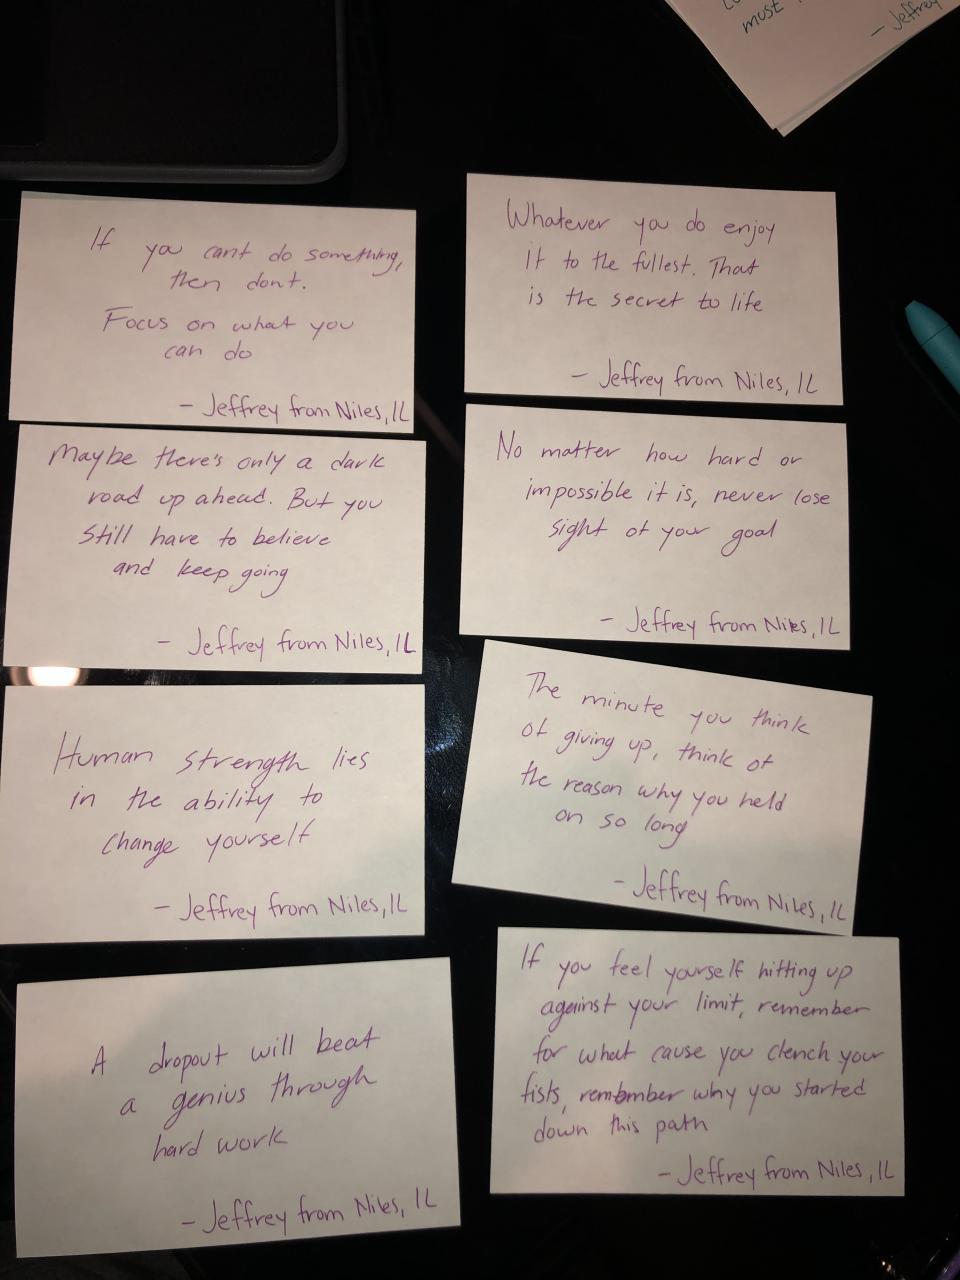 most
- Jeffrey
If you cant do something,
then dont.
Focus on what you
can do
- Jeffrey from Niles, IL
Whatever you do enjoy
it to the fullest. That
is the secret to life
- Jeffrey from Niles, IL
Maybe there's only a dark
road up ahead. But you
still have to believe
and keep going
- Jeffrey from Niles, IL
No matter how hard or
impossible it is, never lose
sight of your goal
- Jeffrey from Niles, IL
Human strength lies
in the ability to
change yourself
- Jeffrey from Niles, IL
The minute you think
of giving up, think of
the reason why you held
on so long
- Jeffrey from Niles, IL
A dropout will beat
a genius through
hard work
- Jeffrey from Niles, IL
If you feel yourself hitting up
against your limit, remember
for what cause you clench your
fists, remember why you started
down this path
- Jeffrey from Niles, IL